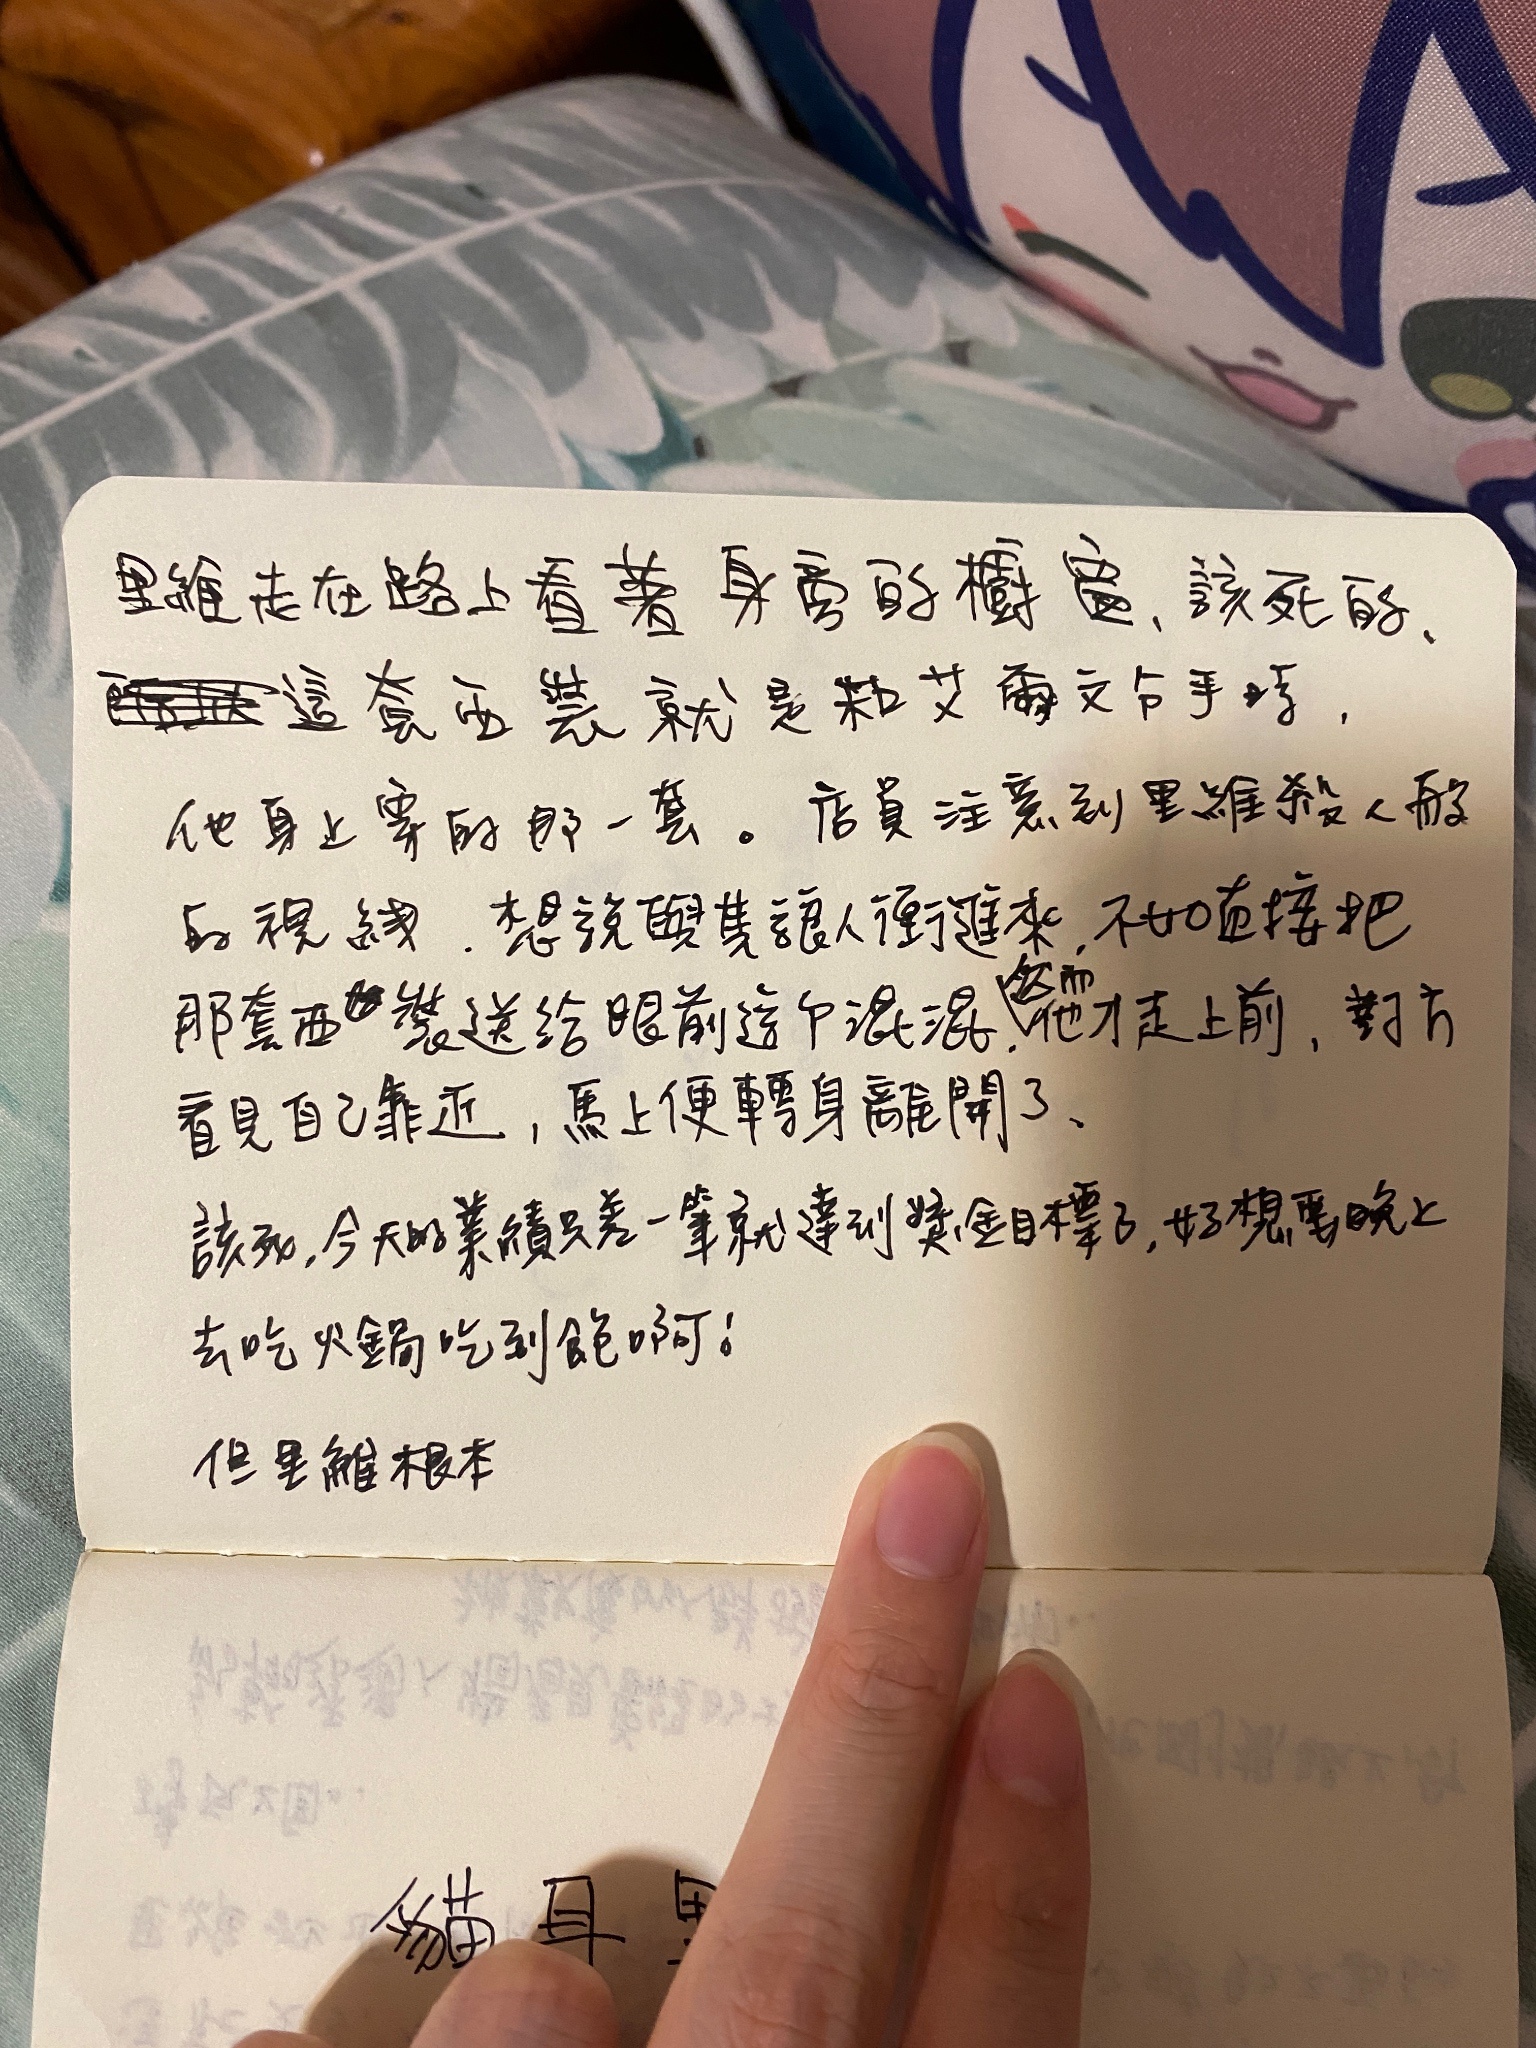 里維走在路上看著身旁的櫥窗、該死的、
這套西裝就是和艾爾文分手時,
他身上穿的那一套。店員注意到里維殺人般
的視線,想說與其讓人衝進來,不如直接把
那套西裝送給眼前這个混混,然而他才走上前,對方
看見自己靠近,馬上便轉身離開了、
該死,今天的業績只差一筆就達到獎金目標了,好想要晚上
去吃火鍋吃到飽啊!
但里維根本
貓耳